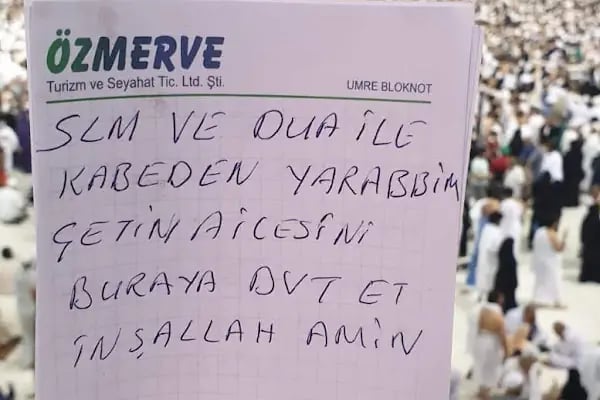 ÖZMERVE
Turizm ve Seyahat Tic. Ltd. Şti.
UMRE BLOKNOT
SLM VE DUA İLE
KABEDEN YARABBİM
ÇETİN AİLESİNİ
BURAYA DVT ET
İNŞALLAH AMİN